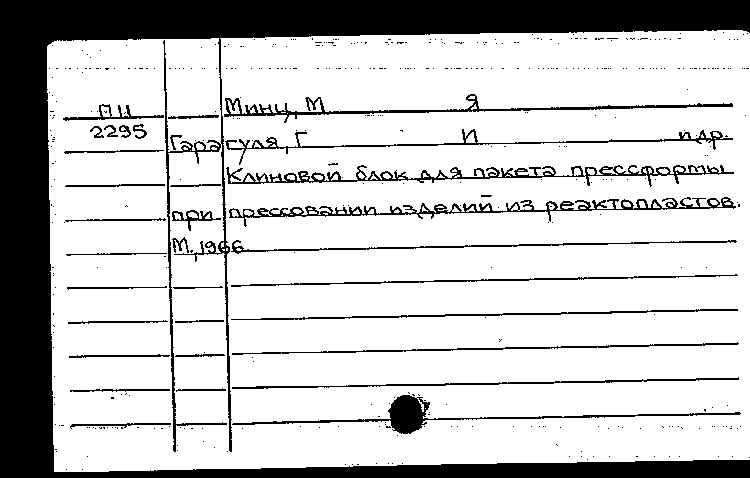 ПИ Минц, М Я
2295 Гарасуля, Г И и др.
Клиновой блок для пакета прессформы
при прессовании изделий из реактопластов.
М., 1966